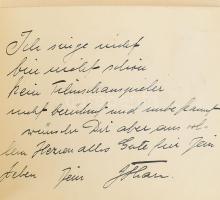 Ich singe nicht
bin nicht schön
kein Filmschauspieler
nicht berühmt und unbekannt
wünsche Dir aber aus vol-
lem Herzen alles Gute für Dein
Leben Dein